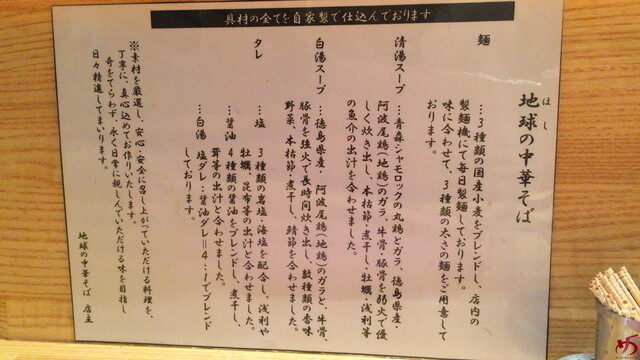 具材の全てを自家製で仕込んでおります
地球の中華そば
ほし
麺
…3種類の国産小麦をブレンドし、店内の
製麺機にて毎日製麺しております。
味に合わせて、3種類の太さの麺をご用意して
おります。
清湯スープ
…青森シャモロックの丸鶏とガラ、徳島県産・
阿波尾鶏(地鶏)のガラ、牛骨・豚骨を弱火で優
しく炊き出し、本枯節・煮干し、牡蠣・浅利等
の魚介の出汁を合わせました。
白湯スープ
…徳島県産・阿波尾鶏(地鶏)のガラと、牛骨、
豚骨を強火で長時間炊き出し、数種類の香味
野菜、本枯節・煮干し、鯖節を合わせました。
タレ
…塩 3種類の岩塩・海塩を配合し、浅利や
牡蠣、昆布等の出汁と合わせました。
…醤油 4種類の醤油をブレンドし、煮干し、
茸等の出汁と合わせました。
…白湯 塩ダレ:醤油ダレ=4:1でブレンド
しております。
※素材を厳選し、安心・安全に召し上がっていただける料理を、
丁寧に、真心込めてお作りいたします。
奇をてらわず、永く日常に親しんでいただける味を目指し
日々精進してまいります。
地球の中華そば 店主